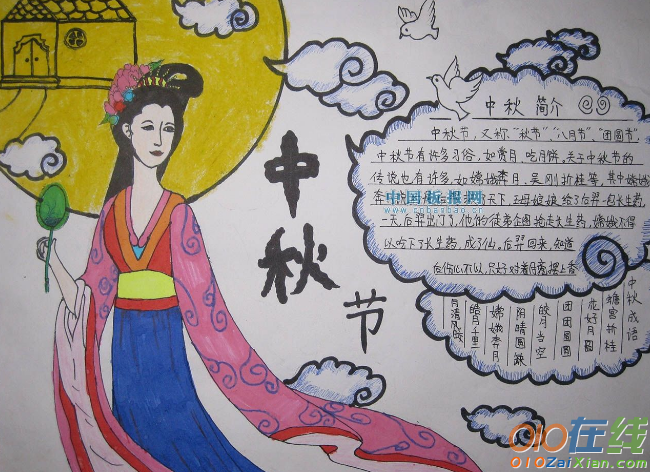 中秋节
中秋简介
中秋节,又称"秋节","八月节","团圆节",
中秋节有许多习俗,如赏月、吃月饼。关于中秋节的
传说也有许多,如嫦娥奔月,吴刚折桂等,其中嫦娥
奔 天下,王母娘娘给了后羿一包长生药,
一天,后羿出门了,他的徒弟企图抢走长生药,嫦娥不得
以吃下了长生药,成了仙。后羿回来,知道
后伤心不以,只好对着月亮摆上香
中国板报网
www.cnbanbao.cn
中秋成语
蟾宫折桂
花好月圆
团团圆圆
皎月当空
阴晴圆缺
嫦娥奔月
皓月千里
月清风
010在线
010ZaiXian.com